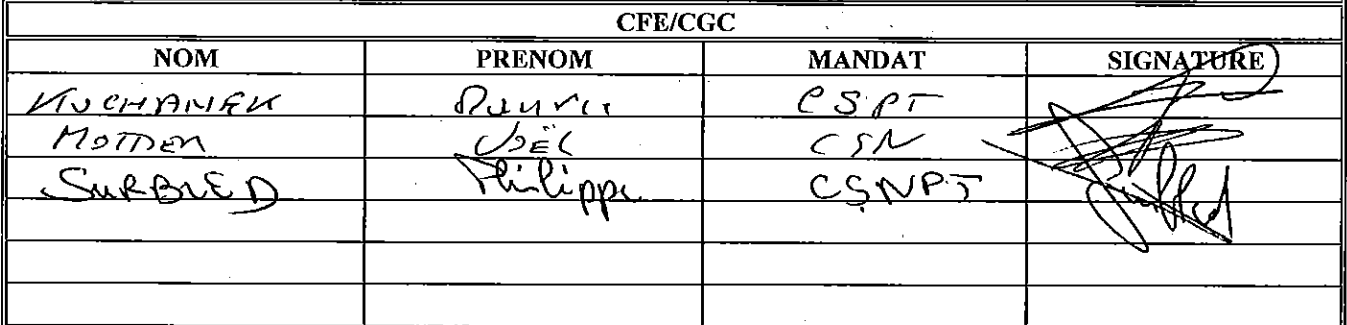 CFE/CGC
NOM PRENOM MANDAT SIGNATURE
KUCHANEK CSPT
JOËL CSN
SURBLED Philippe CSNPT